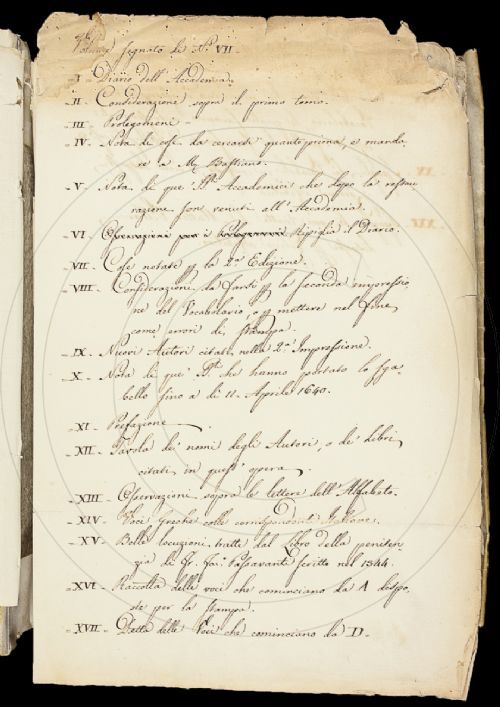 Volume segnato di N.º VII.
I - Diario dell' Accademia.
II - Considerazione sopra il primo tomo.
III - Prolegomeni -
IV - Nota di cose da cercarsi quanto prima, e manda-
re a M.
V - Nota di que' SS.ri Accademici che dopo la restau-
razione son venuti all' Accademia.
VI - Osservazioni per i Prolegomeni Ripiglia il Diario.
VII - Cose notate p la 2.a Edizione.
VIII - Considerazione da farsi p la seconda impressio-
ne del Vocabolario, o p mettere nel fine
come errori di stampa.
IX - Nuovi Autori citati nella 2.a Impressione.
X - Nota di que' SS.ri che hanno portato lo sga-
bello fino a dì 11. Aprile 1640.
XI - Prefazione
XII - Tavola de' nomi degli Autori, o de' Libri
citati in quest' opera.
XIII - Osservazione sopra le lettere dell' Alfabeto.
XIV - Voci Greche colle corrispondenti Italiane.
XV - Belle locuzioni tratte dal Libro della peniten-
zia di Fr. Jac. Passavanti scritto nel 1544.
XVI - Raccolta delle voci che cominciano da A dispo-
ste per la stampa.
XVII - Detta delle Voci che cominciano da D.